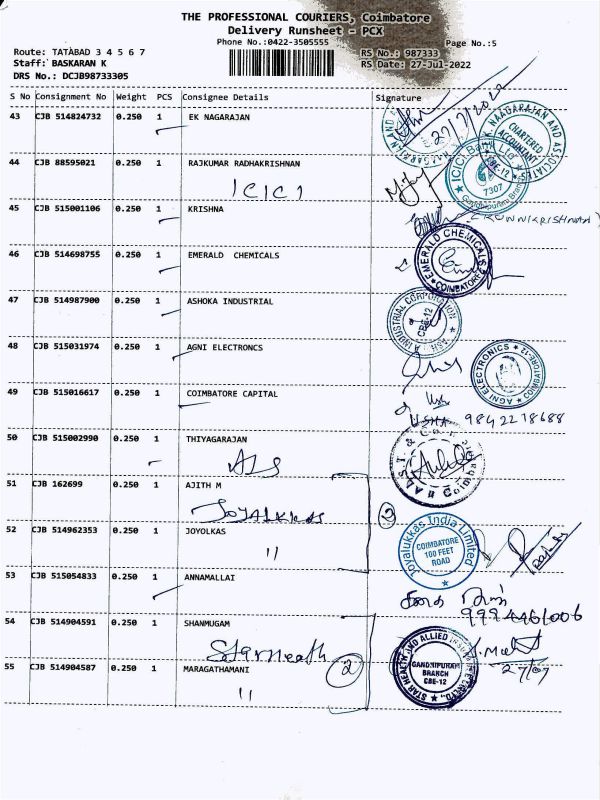 THE PROFESSIONAL COURIERS, Coimbatore
Delivery Runsheet - PCX
Phone No.:0422-3505555
Page No.:5
Route: TATABAD 3 4 5 6 7
RS No.: 987333
Staff: BASKARAN K
RS Date: 27-Jul-2022
DRS No.: DCJB98733305
S No Consignment No Weight PCS Consignee Details Signature
43 CJB 514824732 0.250 1 EK NAGARAJAN
27/7/2022
NAAGARAJAN AND ASSOCIATES
CHARTERED ACCOUNTANT
44 CJB 88595021 0.250 1 RAJKUMAR RADHAKRISHNAN
ICICI
ICICI Bank Ltd
CBE-12
7307
45 CJB 515001106 0.250 1 KRISHNA
46 CJB 514698755 0.250 1 EMERALD CHEMICALS
EMERALD CHEMICALS
COIMBATORE
47 CJB 514987900 0.250 1 ASHOKA INDUSTRIAL
INDUSTRIAL CORPORATION
CBE-12
48 CJB 515031974 0.250 1 AGNI ELECTRONCS
AGNI ELECTRONICS
COIMBATORE-12
49 CJB 515016617 0.250 1 COIMBATORE CAPITAL
USHA 9842218688
50 CJB 515002990 0.250 1 THIYAGARAJAN
51 CJB 162699 0.250 1 AJITH M
Joyalkkas
52 CJB 514962353 0.250 1 JOYOLKAS
"
2
Joyalukkas India Limited
COIMBATORE
100 FEET
ROAD
53 CJB 515054833 0.250 1 ANNAMALLAI
9994461006
54 CJB 514904591 0.250 1 SHANMUGAM
Star Health
STAR HEALTH AND ALLIED
GANDHIPURAM
BRANCH
CBE-12
55 CJB 514904587 0.250 1 MARAGATHAMANI
"
2
27/07